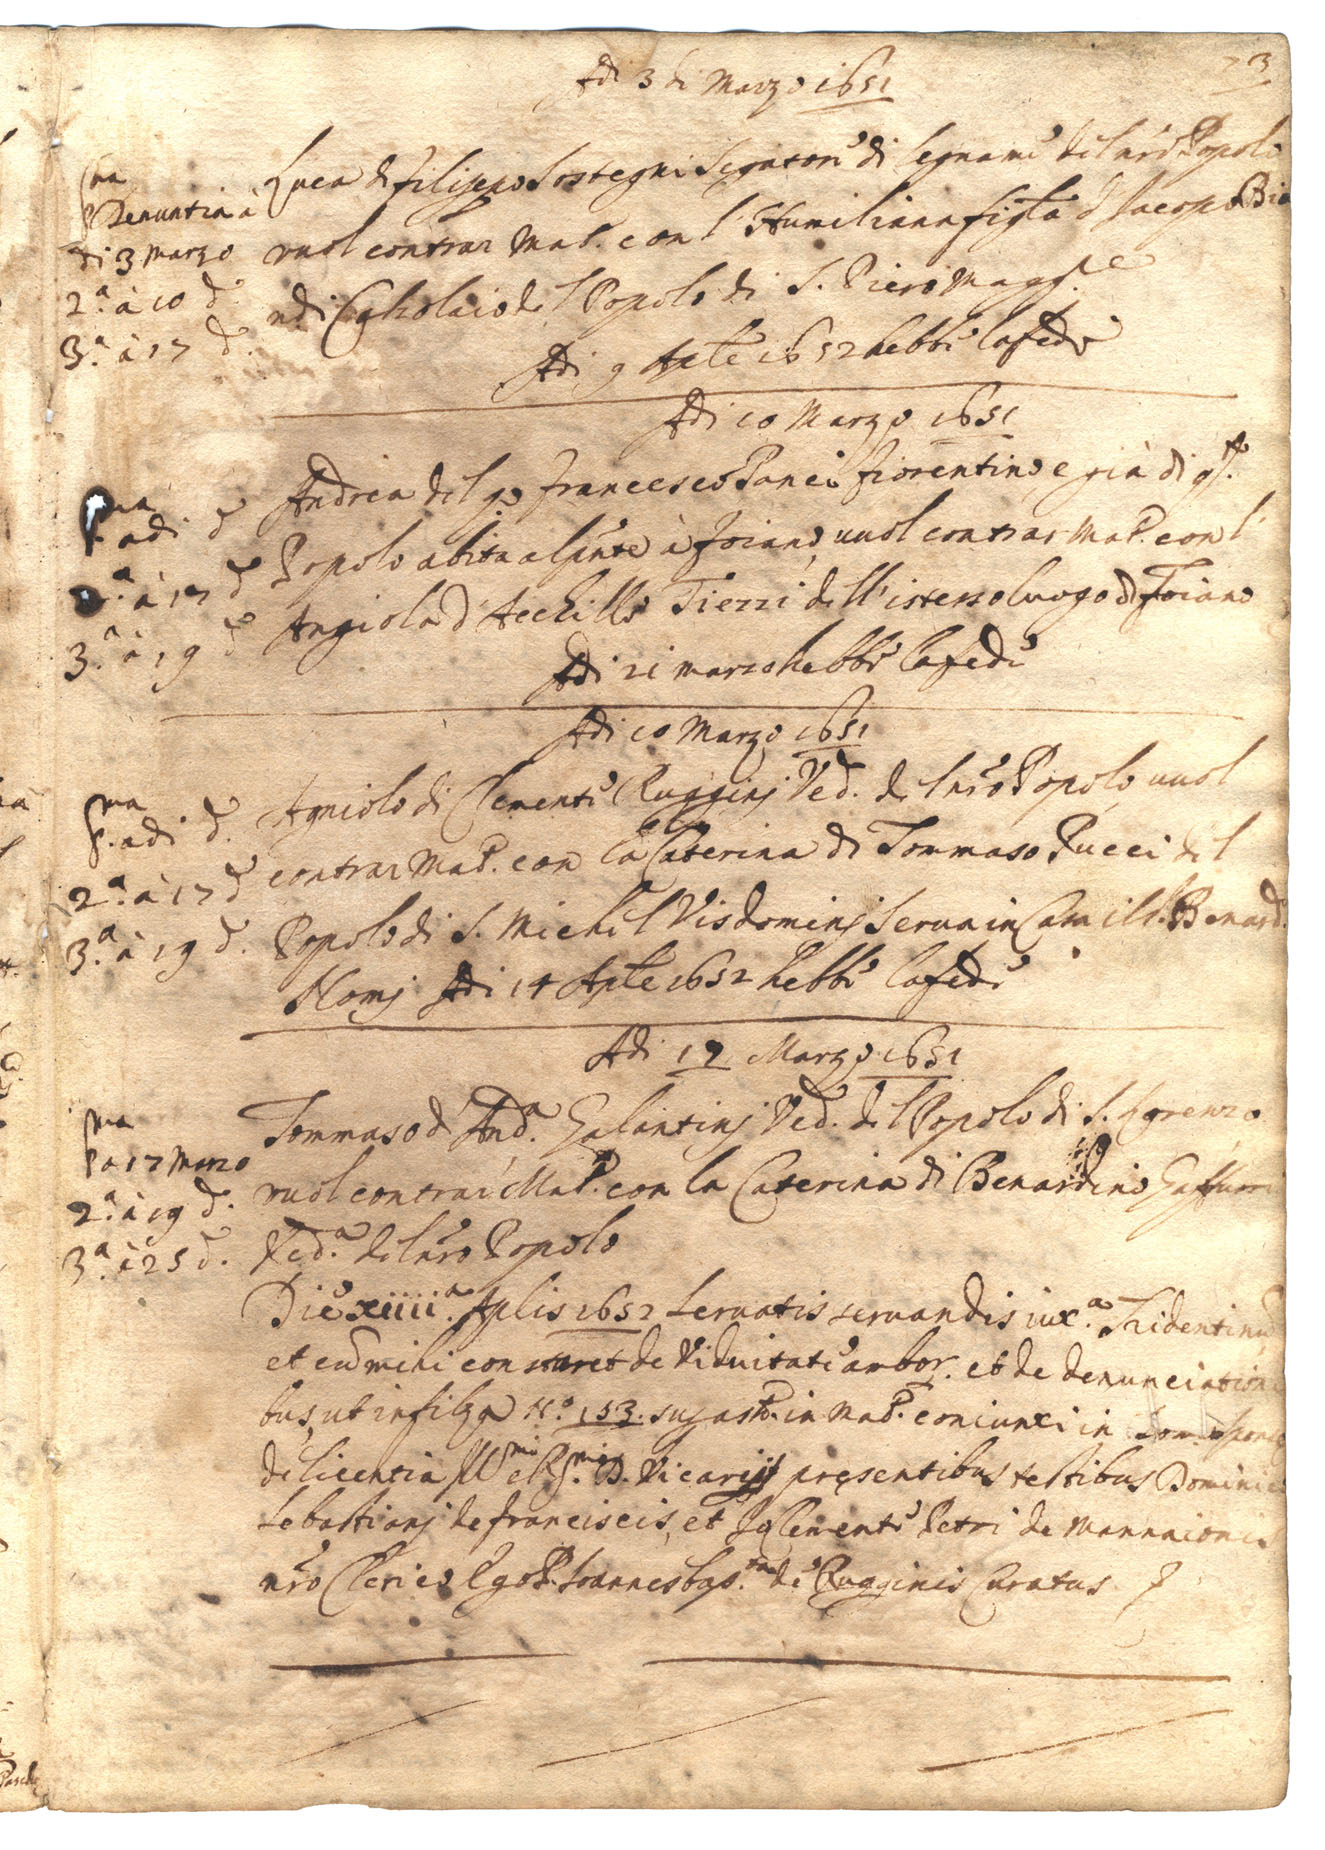 73
Adi 3 di Marzo 1651
p.ma Denuntia à
di 3 Marzo
2.a à 10 d.
3.a à 17 d.
Luca di Filippo Sostegni Segatore di legname del nr̃o Popolo
vuol contrar Mat.o con l' Humiliana figl.a d' Jacopo Bia
ndi Cghiolaio del Popolo di S. Piero Magg.re
Adi 9 Aple 1652 hebbe la fede
Adi 10 Marzo 1651
p.ma adi d.o
2.a à 17 d.o
3.a à 19 d.o
Andrea del q.o Francesco Panci fiorentino, e già di q.sto
Popolo abita al pñte à Foiano, vuol contrar Mat.o con l'
Angiola d' Achille Tierri dell' istesso luogo di Foiano
Adi 21 marzo hebbe la fede
Adi 10 Marzo 1651
p.ma adi d.o
2.a à 17 d.o
3.a à 19 d.o
Agniolo di Clemente Rugginj Ved.o del nr̃o Popolo, vuol
contrar Mat.o con la Caterina di Tommaso Pucci del
Popolo di S. Michel Visdominj serva in Casa il S.r Benard.o
Adi 14 Aple 1652 hebbe la fede
Adi 17 Marzo 1651
p.ma
P.a 17 Marzo
2.a à 19 d.o
3.a à 25 d.o
Tommaso d' And.a Galantinj Ved.o del Popolo di S. Lorenzo
vuol contrar Mat.o con la Caterina di Benardino
Ved.a del nr̃o Popolo
Die xiiii.a Aplis 1652 servatis servandis iux.a Tridentinũ
et cũ mihi constaret de Viduitate ambor. et de denunciationi
bus, ut in filza N.o 153. in Mat.o coniunxi in
de licentia Ill.mi et R.mi D. Vicarij presentibus testibus Dominico
Sebastianj de Franciscis, et Clemente Petri de Mannaionis
nr̃o Clerico Ego P. Joannes bap.ta de Rugginis Curatus